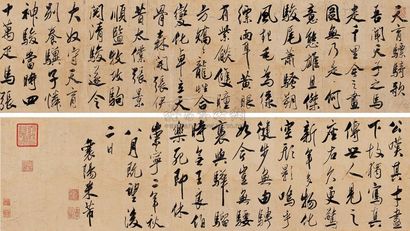 天育驃騎歌
吾聞天子之馬
走千里今之畫
圖無乃是何
意態雄且傑
駿尾蕭梢朔
風起毛為緑
縹兩耳黃眼
有紫燄雙瞳
方矯矯龍性合
變化卓立天
骨森開張伊
昔太僕張景
順監牧攻駒
閱清峻遂令
大奴守天育
別養驥子憐
神駿當時四
十萬匹馬張
公嘆其才盡
下故獨寫真
傳世人見之
座右久更
新年多物化
空形影嗚呼
健步無由騁
如今豈無騕
褭與驊騮
時無王良伯
樂死即休
崇寧二年秋
八月既望後
二日
襄陽米芾